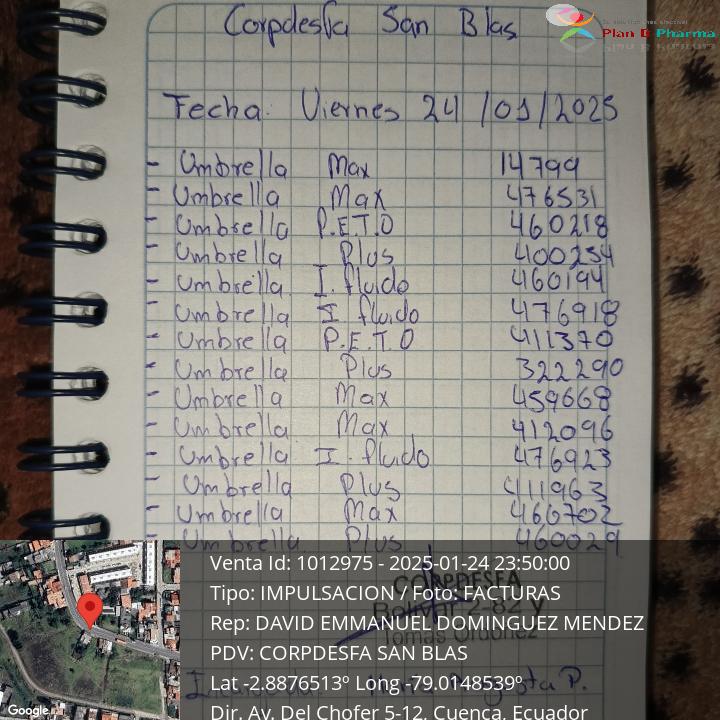 Corpdesfa San Blas
Plan B Pharma
Fecha: Viernes 24/01/2025
- Umbrella Max 14799
- Umbrella Max 476531
- Umbrella P.E.T.O 460218
- Umbrella Plus 400254
- Umbrella I. fluido 460194
- Umbrella I fluido 476918
- Umbrella P.E.T.O 411370
- Umbrella Plus 322290
- Umbrella Max 459668
- Umbrella Max 412096
- Umbrella I. fluido 476923
- Umbrella Plus 411963
- Umbrella Max 460702
- Umbrella Plus 460029
Venta Id: 1012975 - 2025-01-24 23:50:00
CORPDESFA
Tipo: IMPULSACION / Foto: FACTURAS
Bolívar 2-82 y
Rep: DAVID EMMANUEL DOMINGUEZ MENDEZ
Tomás Ordóñez
PDV: CORPDESFA SAN BLAS
Lat -2.8876513º Long -79.0148539º
P.
Dir. Av. Del Chofer 5-12, Cuenca, Ecuador
Google